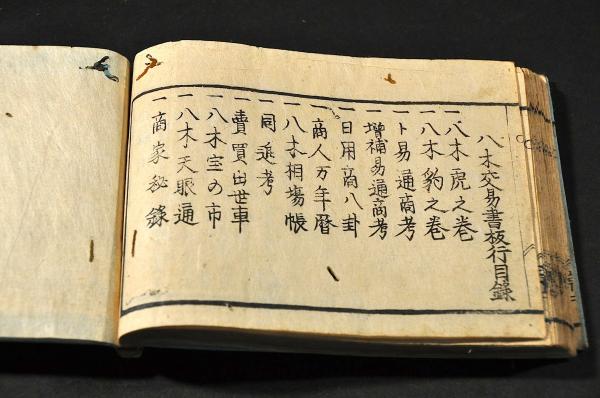 八木交易書板行目録
一八木虎之巻
一八木豹之巻
一卜易通商考
一増補易通商考
一日用商八卦
一商人万年暦
一八木相場帳
一同追考
一賣買出世車
一八木宝の市
一八木天眼通
一商家秘録